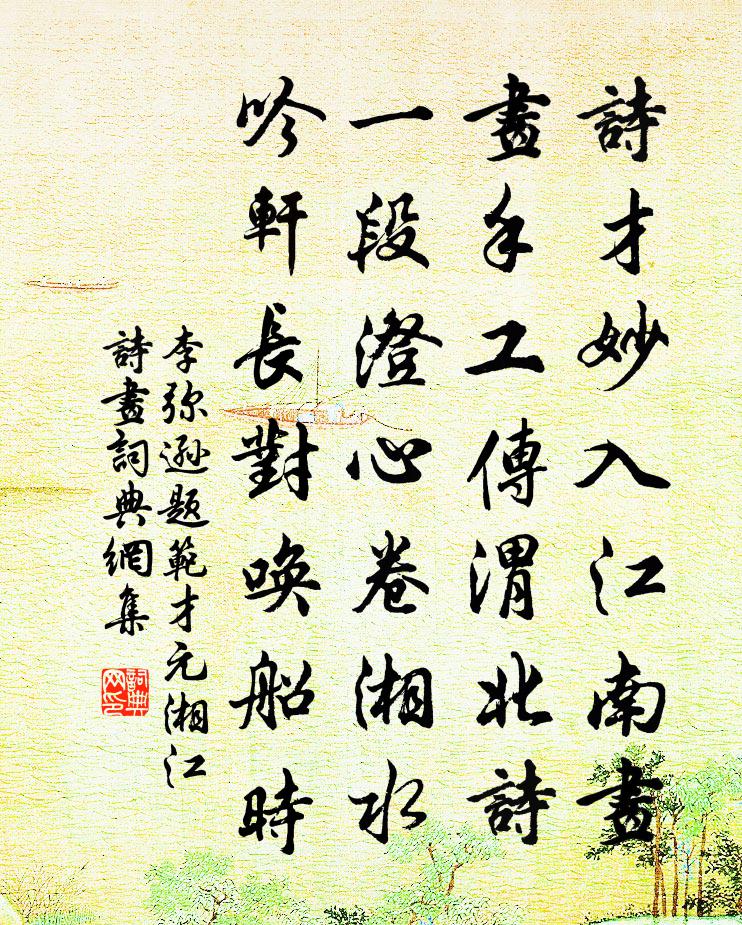 詩才妙入江南畫
畫手工傳渭北詩
一段澄心卷湘水
吟軒長對喚船時
李弥遜题範才元湘江
詩畫詞典網集
詞典网印